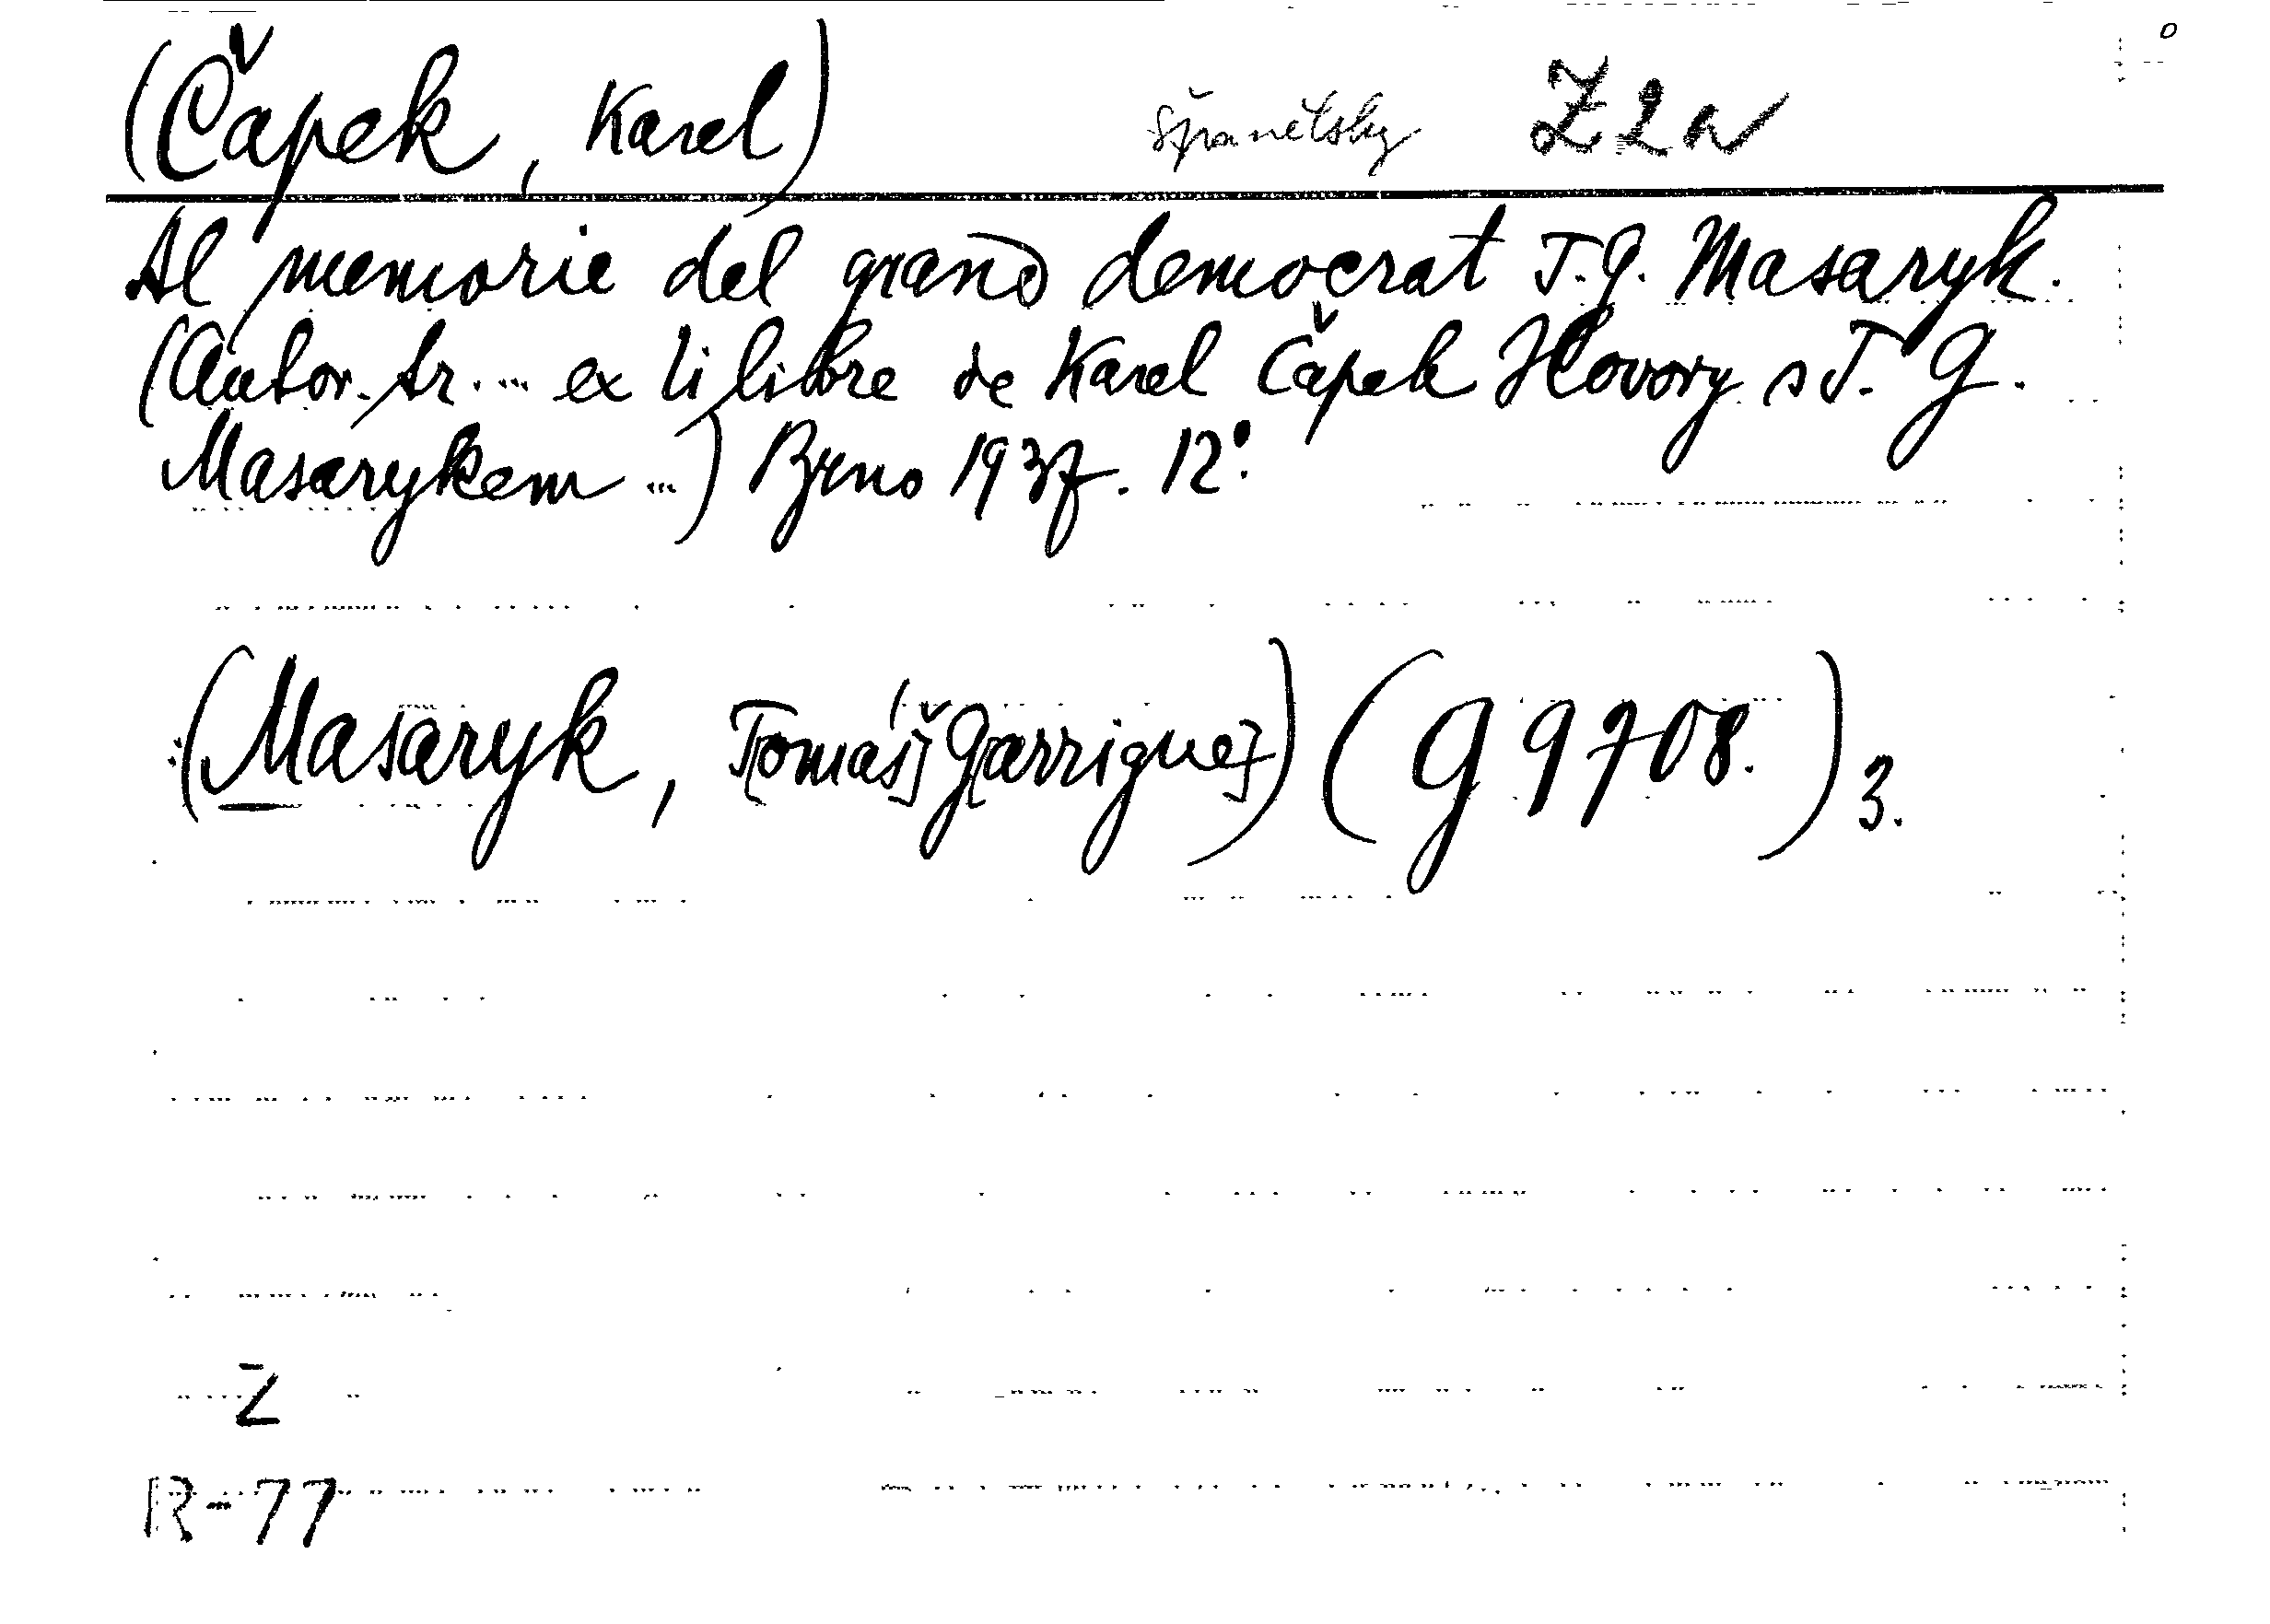 (Čapek, Karel) španělsky Z 2 a
Al memorie del grand democrat T. G. Masaryk.
(Autor. tr. ... ex li libre de Karel Čapek Hovory s T. G.
Masarykem ...) Brno 1937. 12°.
(Masaryk, T[omáš] G[arrigue]) (G 9708.) 3.
Z
R-77